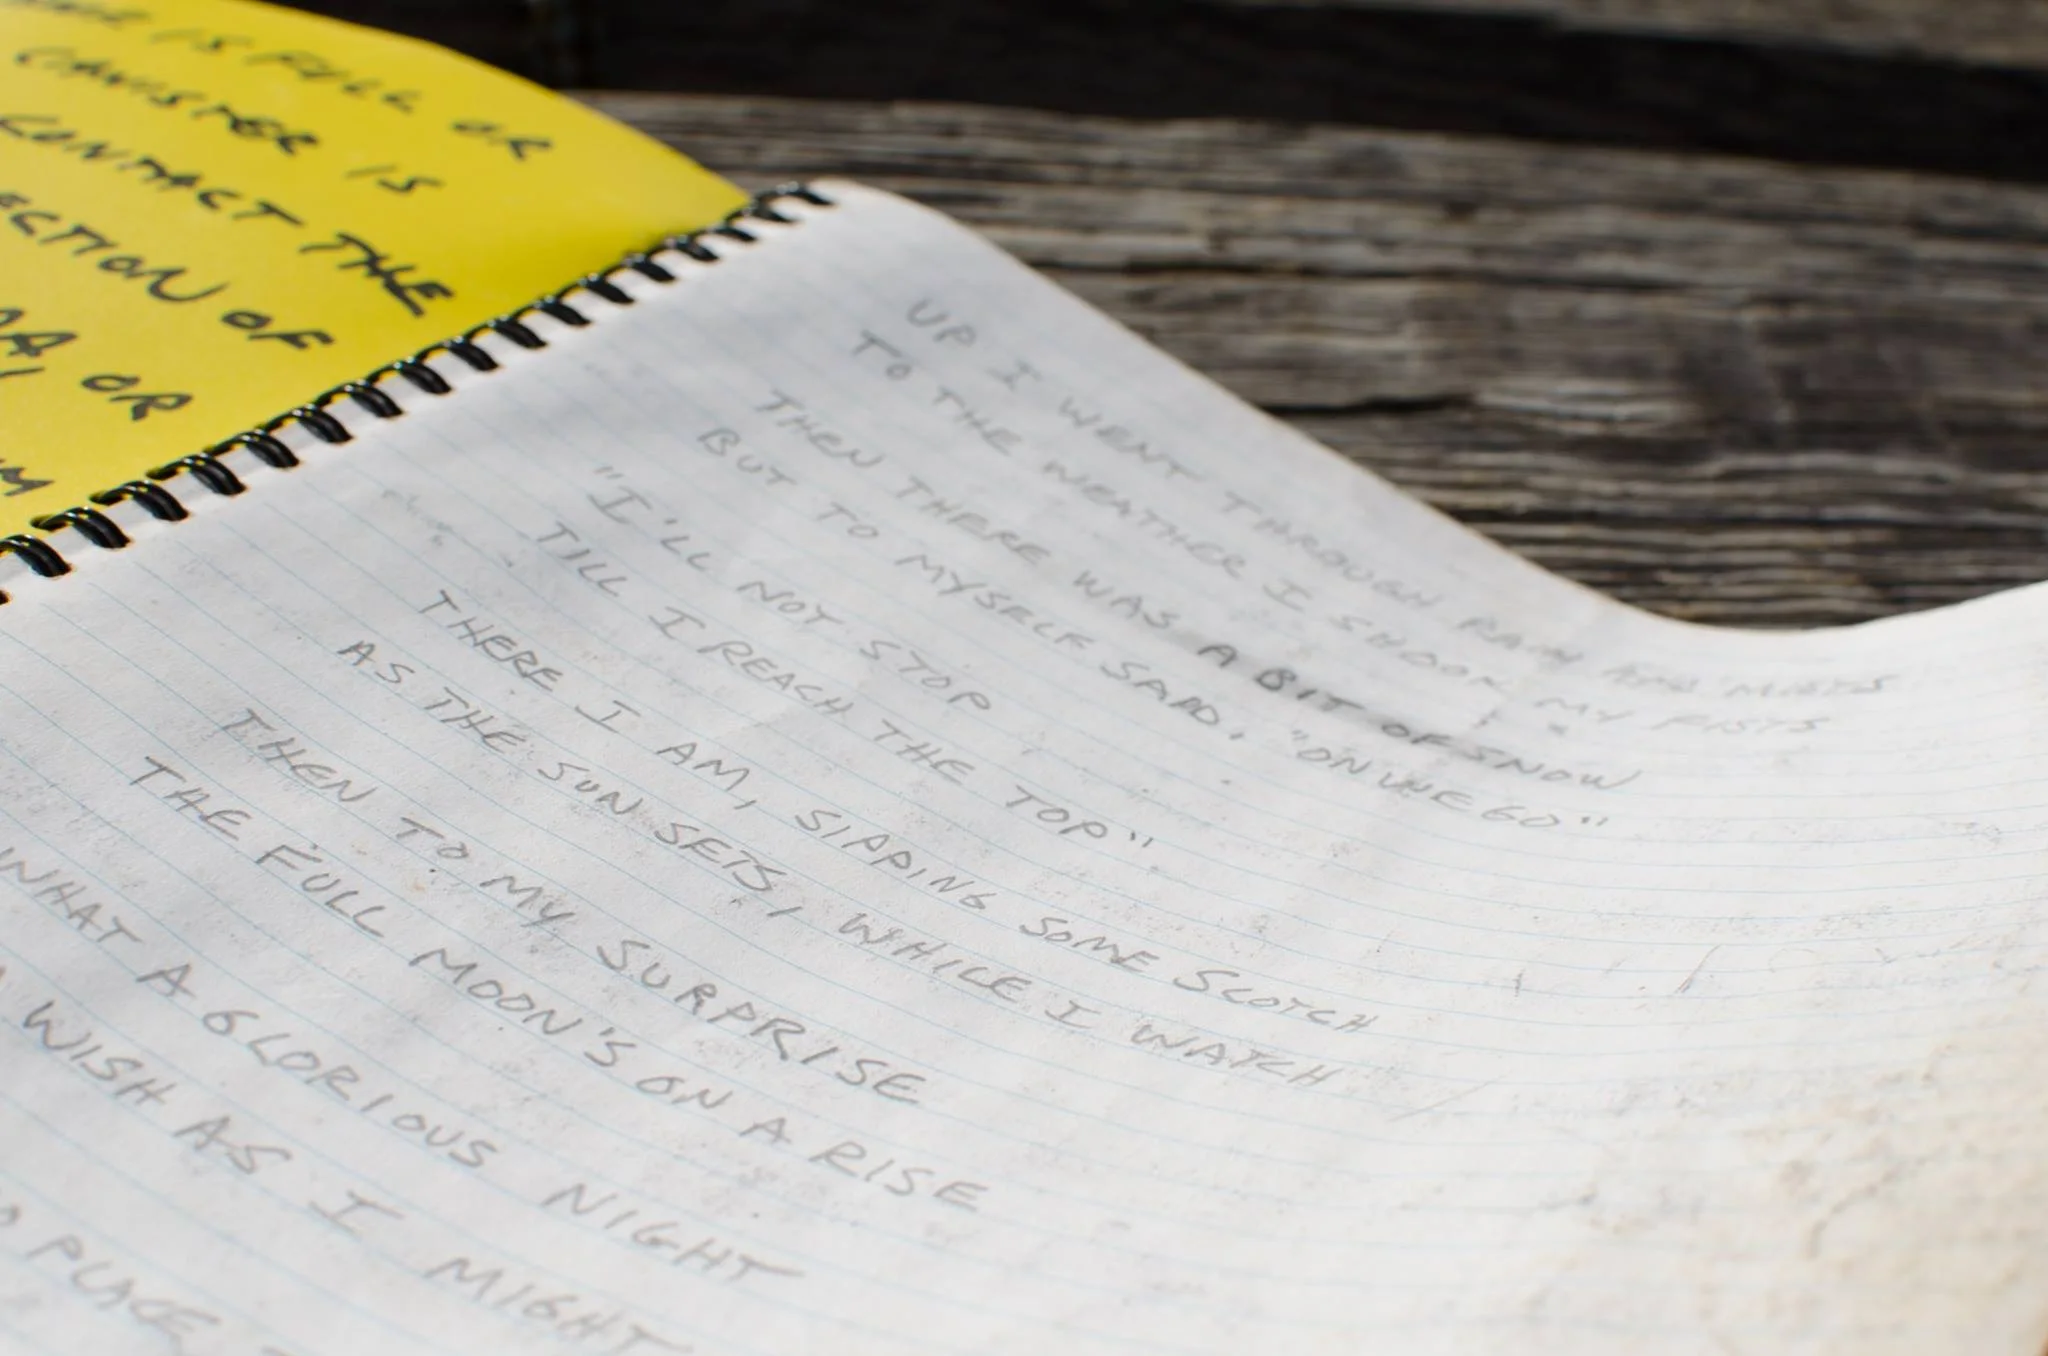 IS FULL OR
CANISTER IS
CONTACT THE
OF
OR
UP I WENT THROUGH RAIN AND MISTS
TO THE WEATHER I SHOOK MY FISTS
THEN THERE WAS A BIT OF SNOW
BUT TO MYSELF SAID, "ON WE GO"
"I'LL NOT STOP
TILL I REACH THE TOP"
THERE I AM, SIPPING SOME SCOTCH
AS THE SUN SETS, WHILE I WATCH
THEN TO MY SURPRISE
THE FULL MOON'S ON A RISE
WHAT A GLORIOUS NIGHT
WISH AS I MIGHT
PLACE